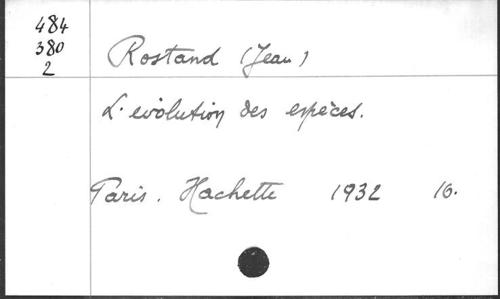 484
380
2
Rostand (Jean)
L'evolution des espèces.
Paris. Hachette 1932 16.